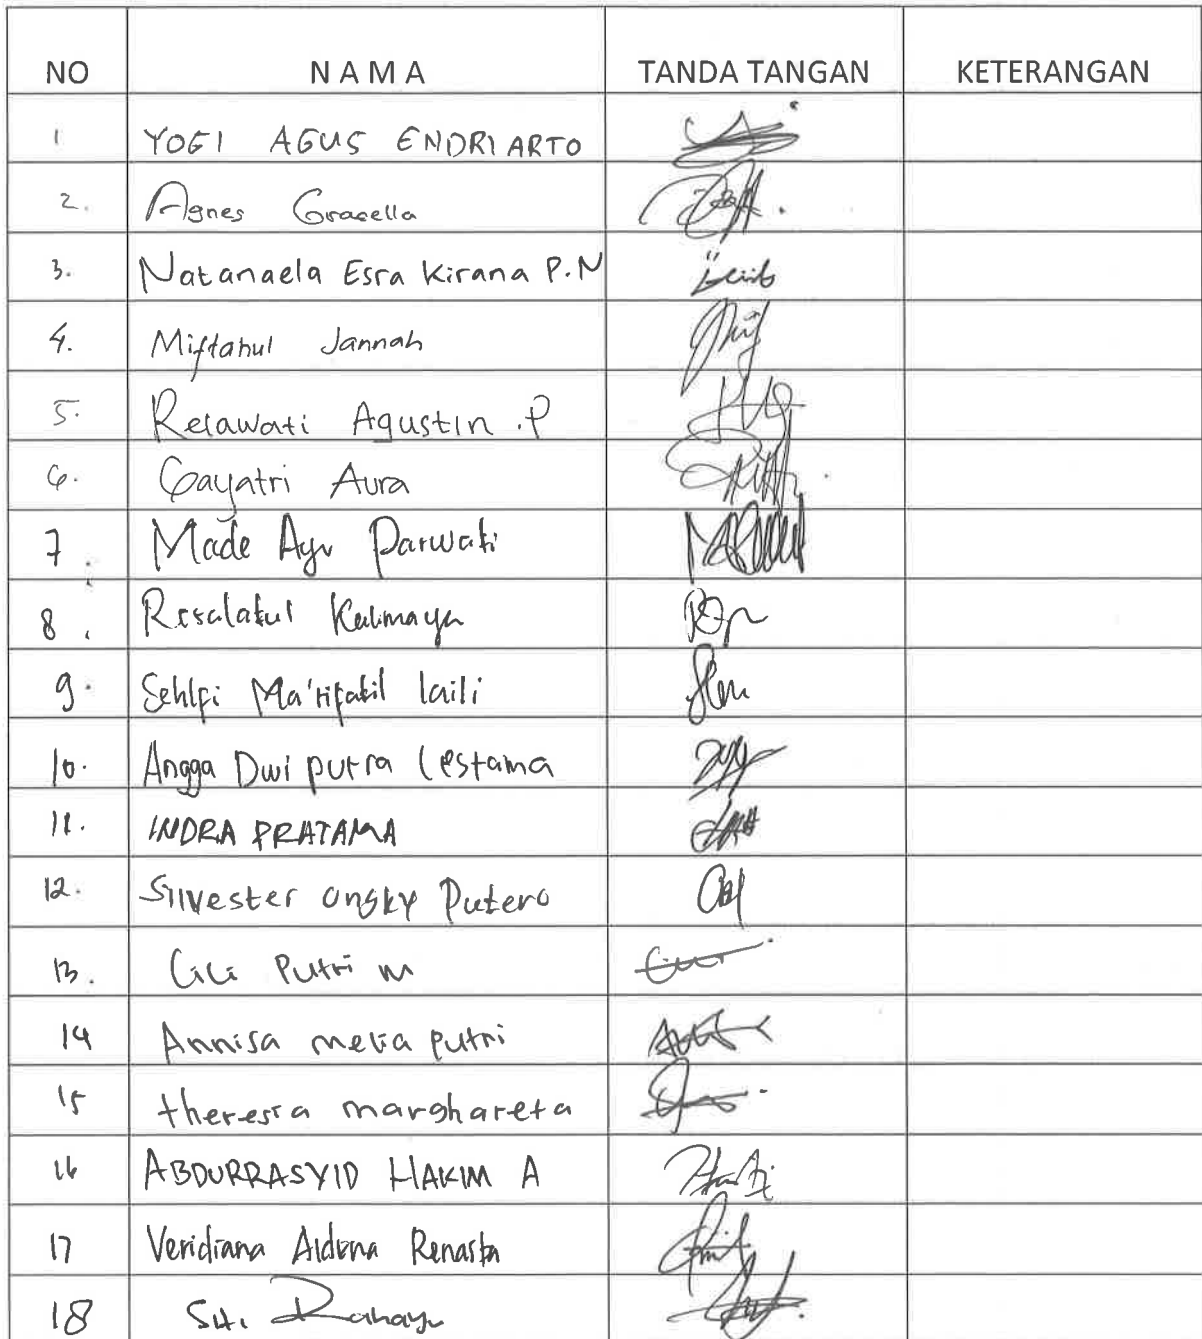 NO NAMA TANDA TANGAN KETERANGAN
1 YOGI AGUS ENDRIARTO
2. Agnes Gracella
3. Natanaela Esra Kirana P.N
4. Miftahul Jannah
5. Retawati Agustin .P
6. Gayatri Aura
7. Made Ayu Parwati
8. Risalatul Kalimaya
9. Sehlfi Ma'rifatil laili
10. Angga Dwi putra lestama
11. INDRA PRATAMA
12. Silvester Putero
13. Cici Putri M
14 Annisa melia putri
15 theresia marghareta
16 ABDURRASYID HAKIM A
17 Veridiana Renasta
18 Siti Rahayu